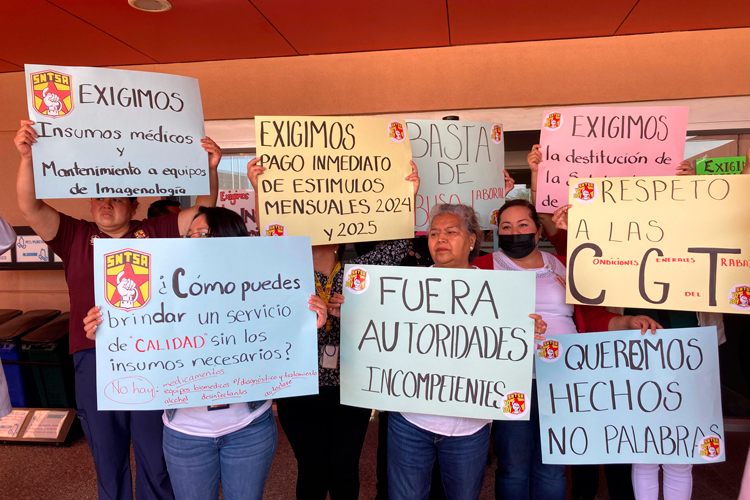 SNTSA
EXIGIMOS
Insumos médicos
y
Mantenimiento a equipos
de Imagenología
EXIGIMOS
PAGO INMEDIATO
DE ESTÍMULOS
MENSUALES 2024
Y 2025
BASTA
DE
LABORAL
EXIGIMOS
la destitución de
la
EXIGI
RESPETO
A LAS
CONDICIONES GENERALES TRABAJO
C G T
DEL
SNTSA
¿Cómo puedes
brindar un servicio
de "CALIDAD" sin los
insumos necesarios?
No hay:
medicamentos
equipos biomedicos p/diagnóstico y tratamiento
alcohol desinfectante
FUERA
AUTORIDADES
INCOMPETENTES
QUEREMOS
HECHOS
NO PALABRAS